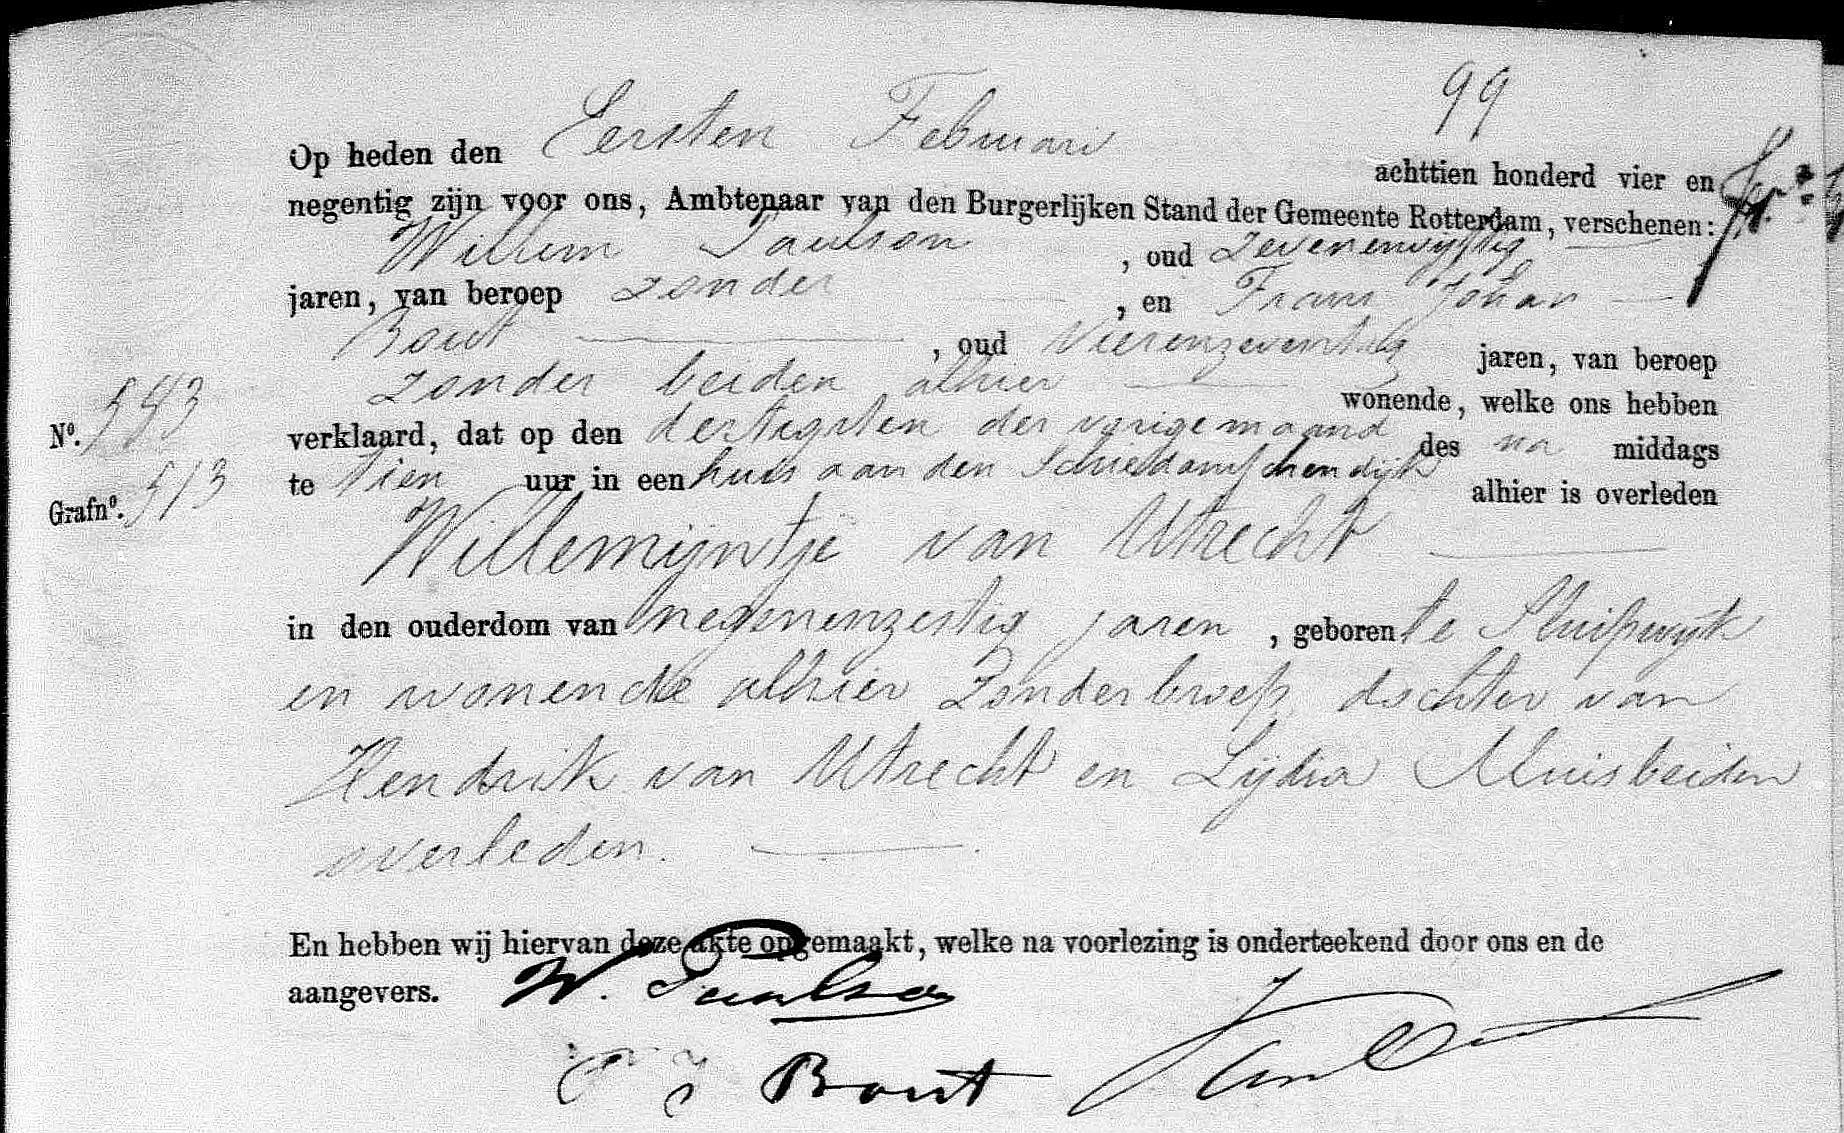 99
Op heden den Eersten Februari achttien honderd vier en
negentig zijn voor ons, Ambtenaar van den Burgerlijken Stand der Gemeente Rotterdam, verschenen:
Willem Paulson, oud Zevenenvijftig
jaren, van beroep zonder, en Frans Johan
Bout, oud Vierenzeventig jaren, van beroep
zonder beiden alhier wonende, welke ons hebben
No. 593 verklaard, dat op den dertigsten der vorige maand des na middags
Grafno. 513 te tien uur in een huis aan den Schiedamschendijk alhier is overleden
Willemijntje van Utrecht
in den ouderdom van negenenzestig jaren, geboren te Sluipwijk
en wonende alhier Zonder beroep dochter van
Hendrik van Utrecht en Lijdia Muis beiden
overleden.
En hebben wij hiervan deze akte opgemaakt, welke na voorlezing is onderteekend door ons en de
aangevers. W. Paulson
Bout